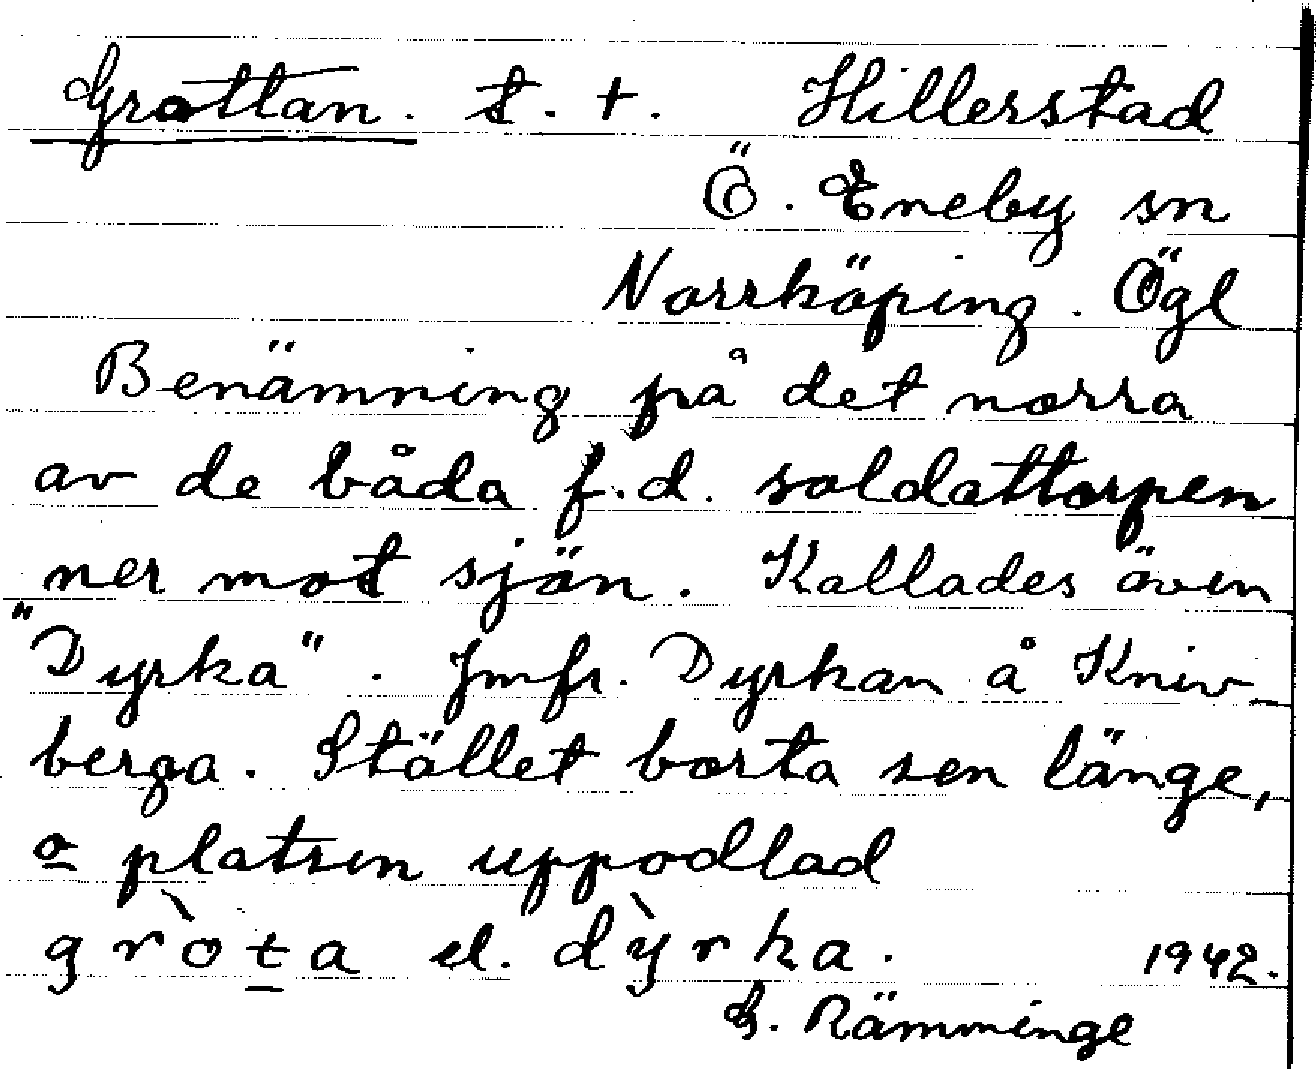 Grottan. t. +. Hillerstad
Ö. Eneby sn
Norrköping. Ögl
Benämning på det norra
av de båda f.d. soldattorpen
ner mot sjön. Kallades även
"Dyrka". Jmfr. Dyrkan å Kniv-
berga. Stället borta sen länge,
o platsen uppodlad
grò̀ta el. dỳrka. 1942.
G. Rämminge